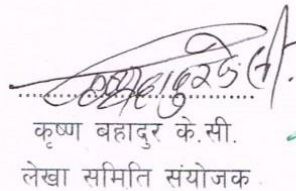 कृष्ण बहादुर के.सी.
लेखा समिति संयोजक